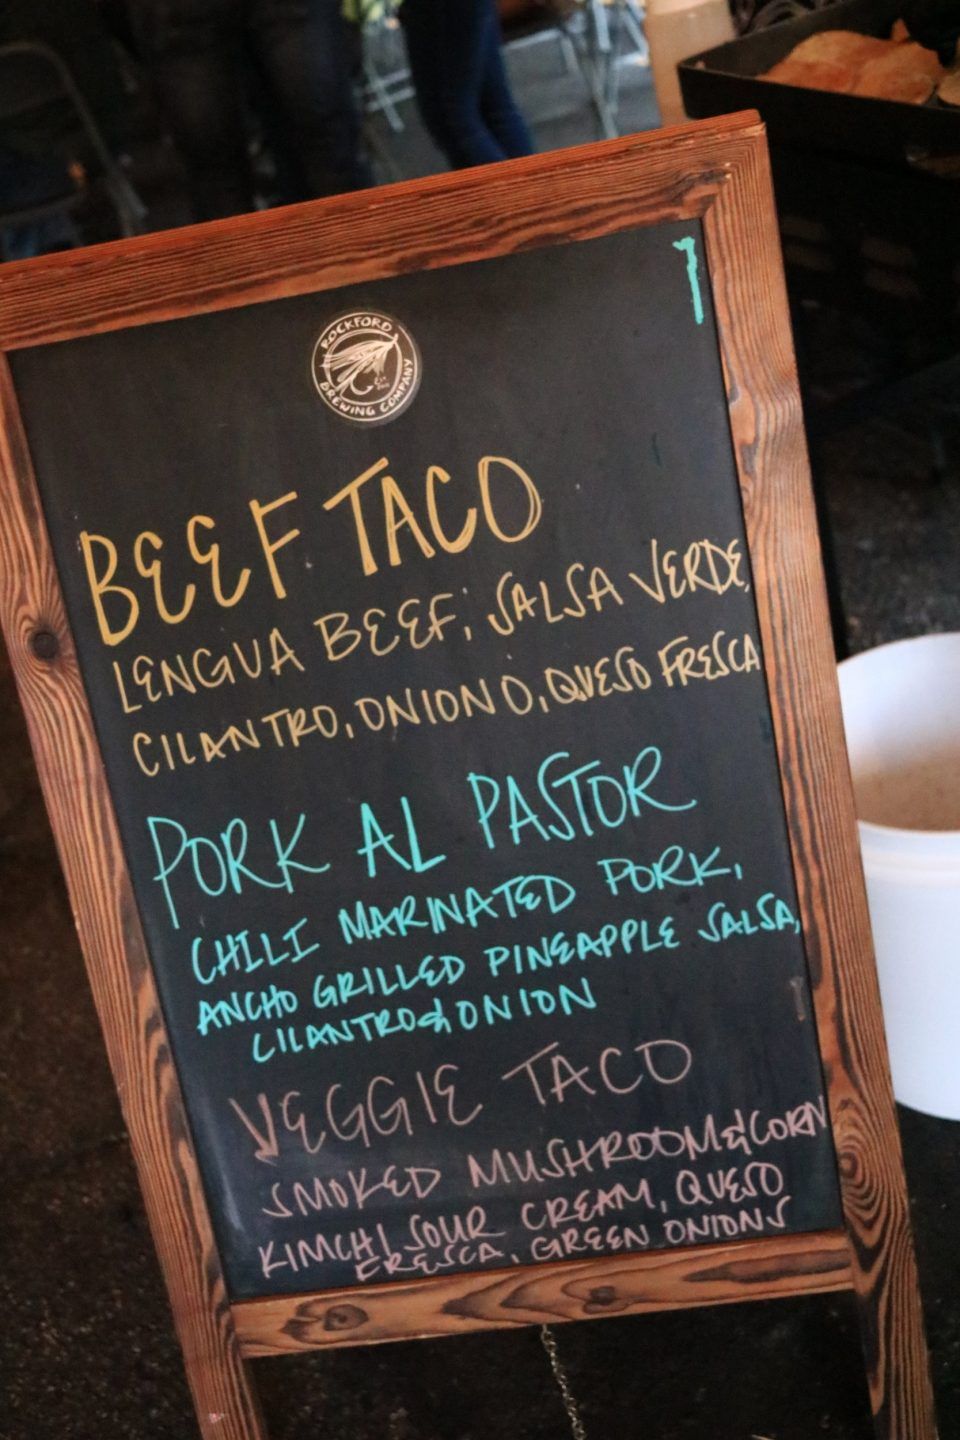 ROCKFORD
BREWING COMPANY
BEEF TACO
LENGUA BEEF, SALSA VERDE,
CILANTRO, ONION O, QUESO FRESCA
PORK AL PASTOR
CHILI MARINATED PORK,
ANCHO GRILLED PINEAPPLE SALSA,
CILANTRO & ONION
VEGGIE TACO
SMOKED MUSHROOM & CORN
KIMCHI SOUR CREAM, QUESO
FRESCA, GREEN ONIONS